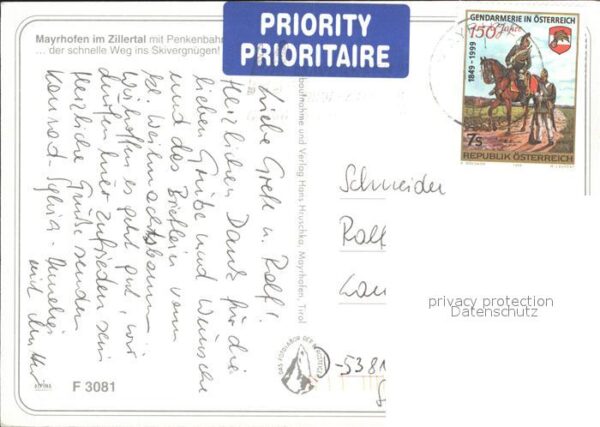 Mayrhofen im Zillertal mit Penkenbahn
... der schnelle Weg ins Skivergnügen!
PRIORITY
PRIORITAIRE
GENDARMERIE IN ÖSTERREICH
150 Jahre
1849-1999
7s
REPUBLIK ÖSTERREICH
Liebe Grete u. Ralf!
Herzlichen Dank für die
lieben Grüße und Wünsche
und das Brieflein vom
Weihnachtsbaum.
Wir hoffen es geht gut, wir
dürfen hier zufrieden sein
Herzliche Grüße senden
Konrad - Sylvia -
und
und Verlag Hans Hruschka, Mayrhofen, Tirol
Schneider
Ralf
D-5381
DAS FOTOLABOR DER
ALPINA
F 3081
privacy protection
Datenschutz